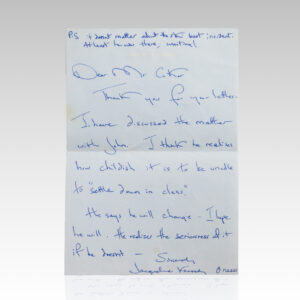 P.S. It doesn't matter about the boat incident.
At least he was there, mentioned
Dear Mr
Thank you for your letter.
I have discussed the matter
with John. I think he realizes
how childish it is to be unable
to "settle down in class."
He says he will change - I hope
he will. He realizes the seriousness of it
if he doesn't — Sincerely
Jacqueline Kennedy Onassis